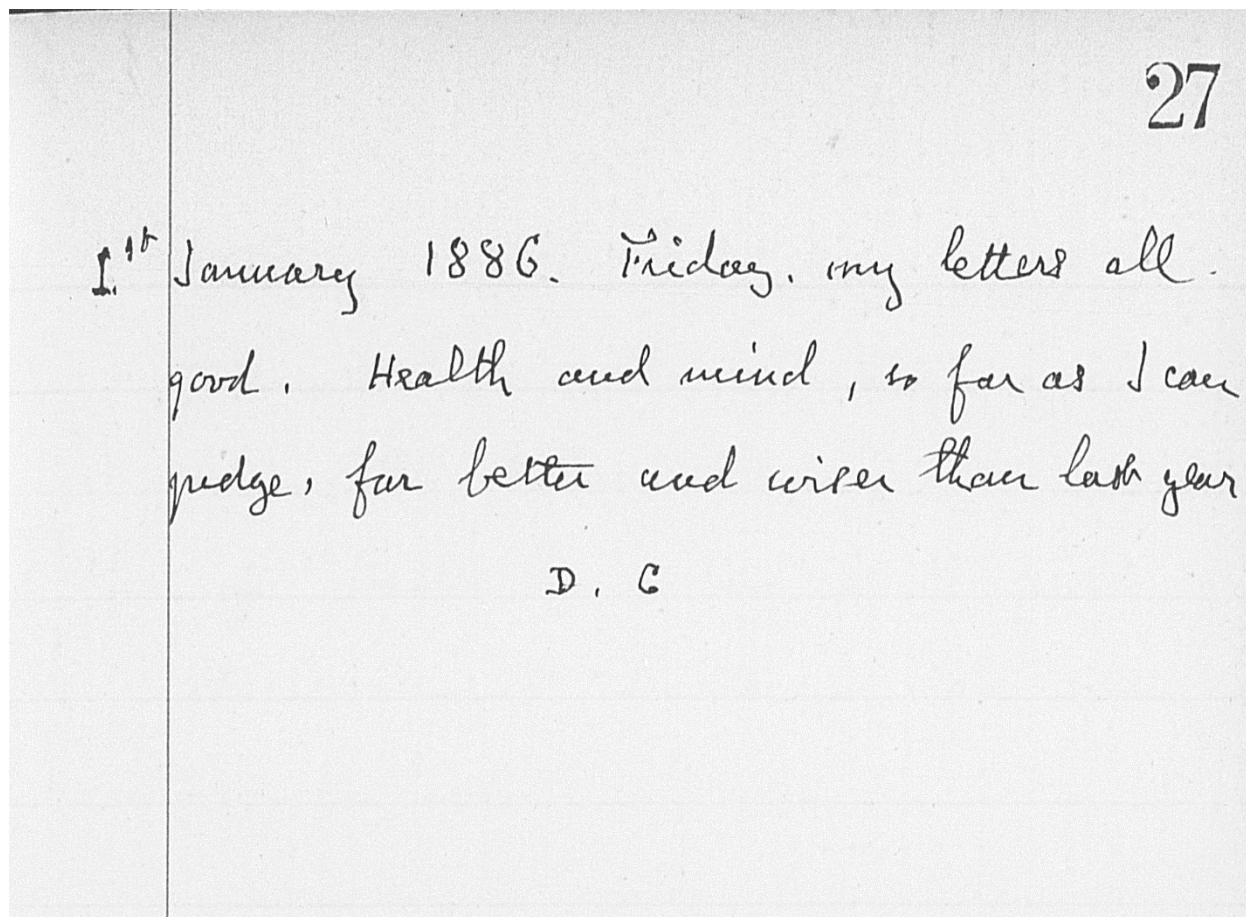 27
1.st January 1886. Friday. my letters all.
good. Health and mind, so far as I can
judge, far better and wiser than last year
D. G